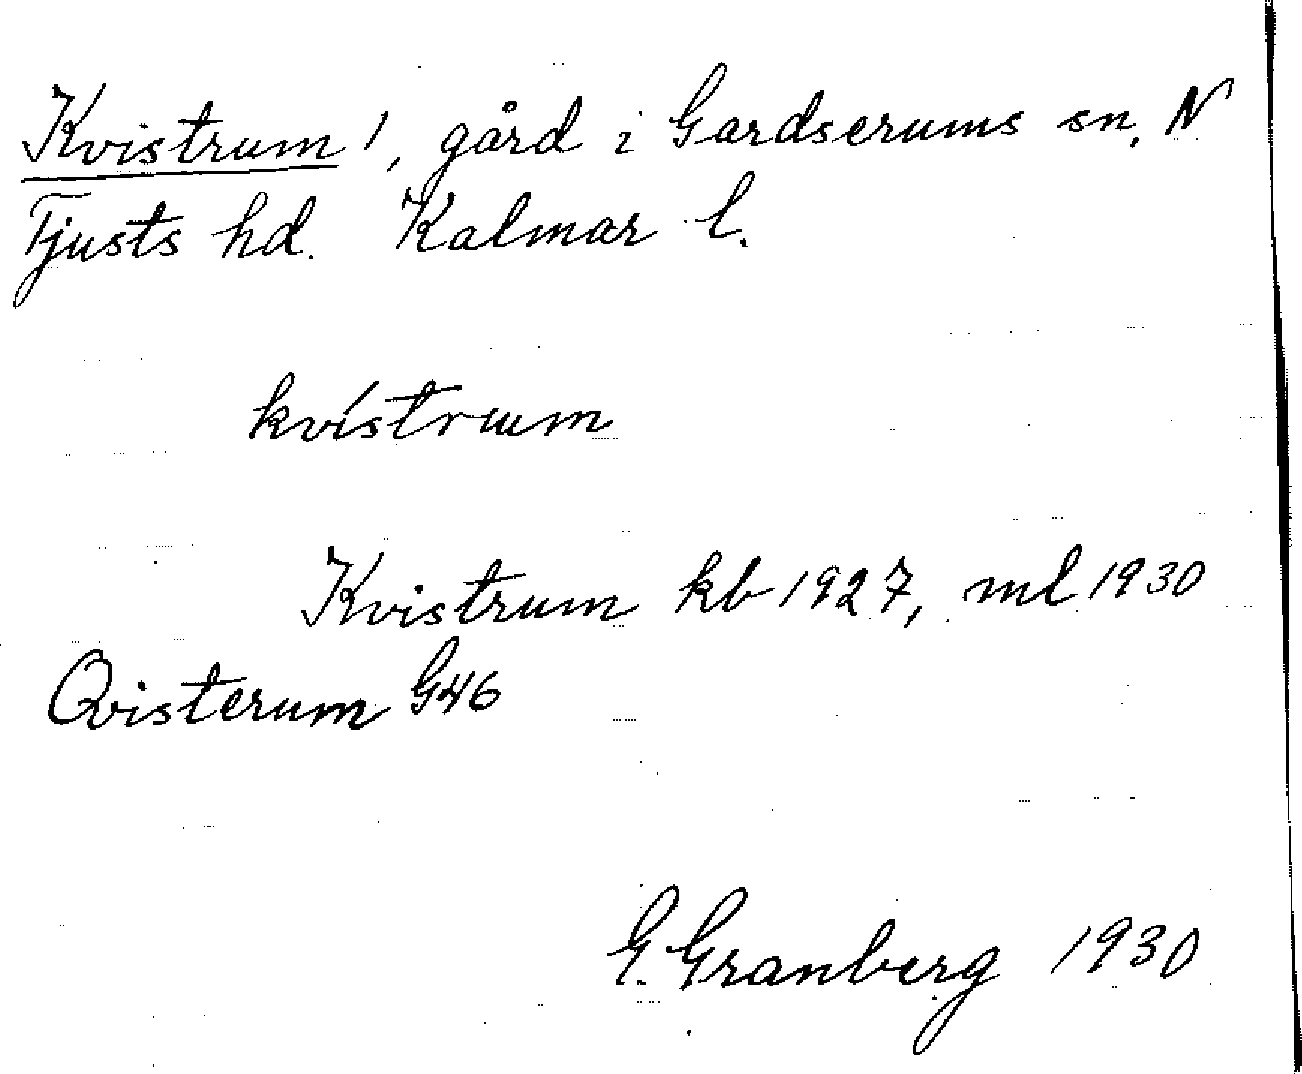 Kvistrum 1, gård i Gardserums sn, N
Tjusts hd. Kalmar l.
kvístrɯm
Kvistrum kb 1927, ml 1930
Qvisterum G46
G. Granberg 1930